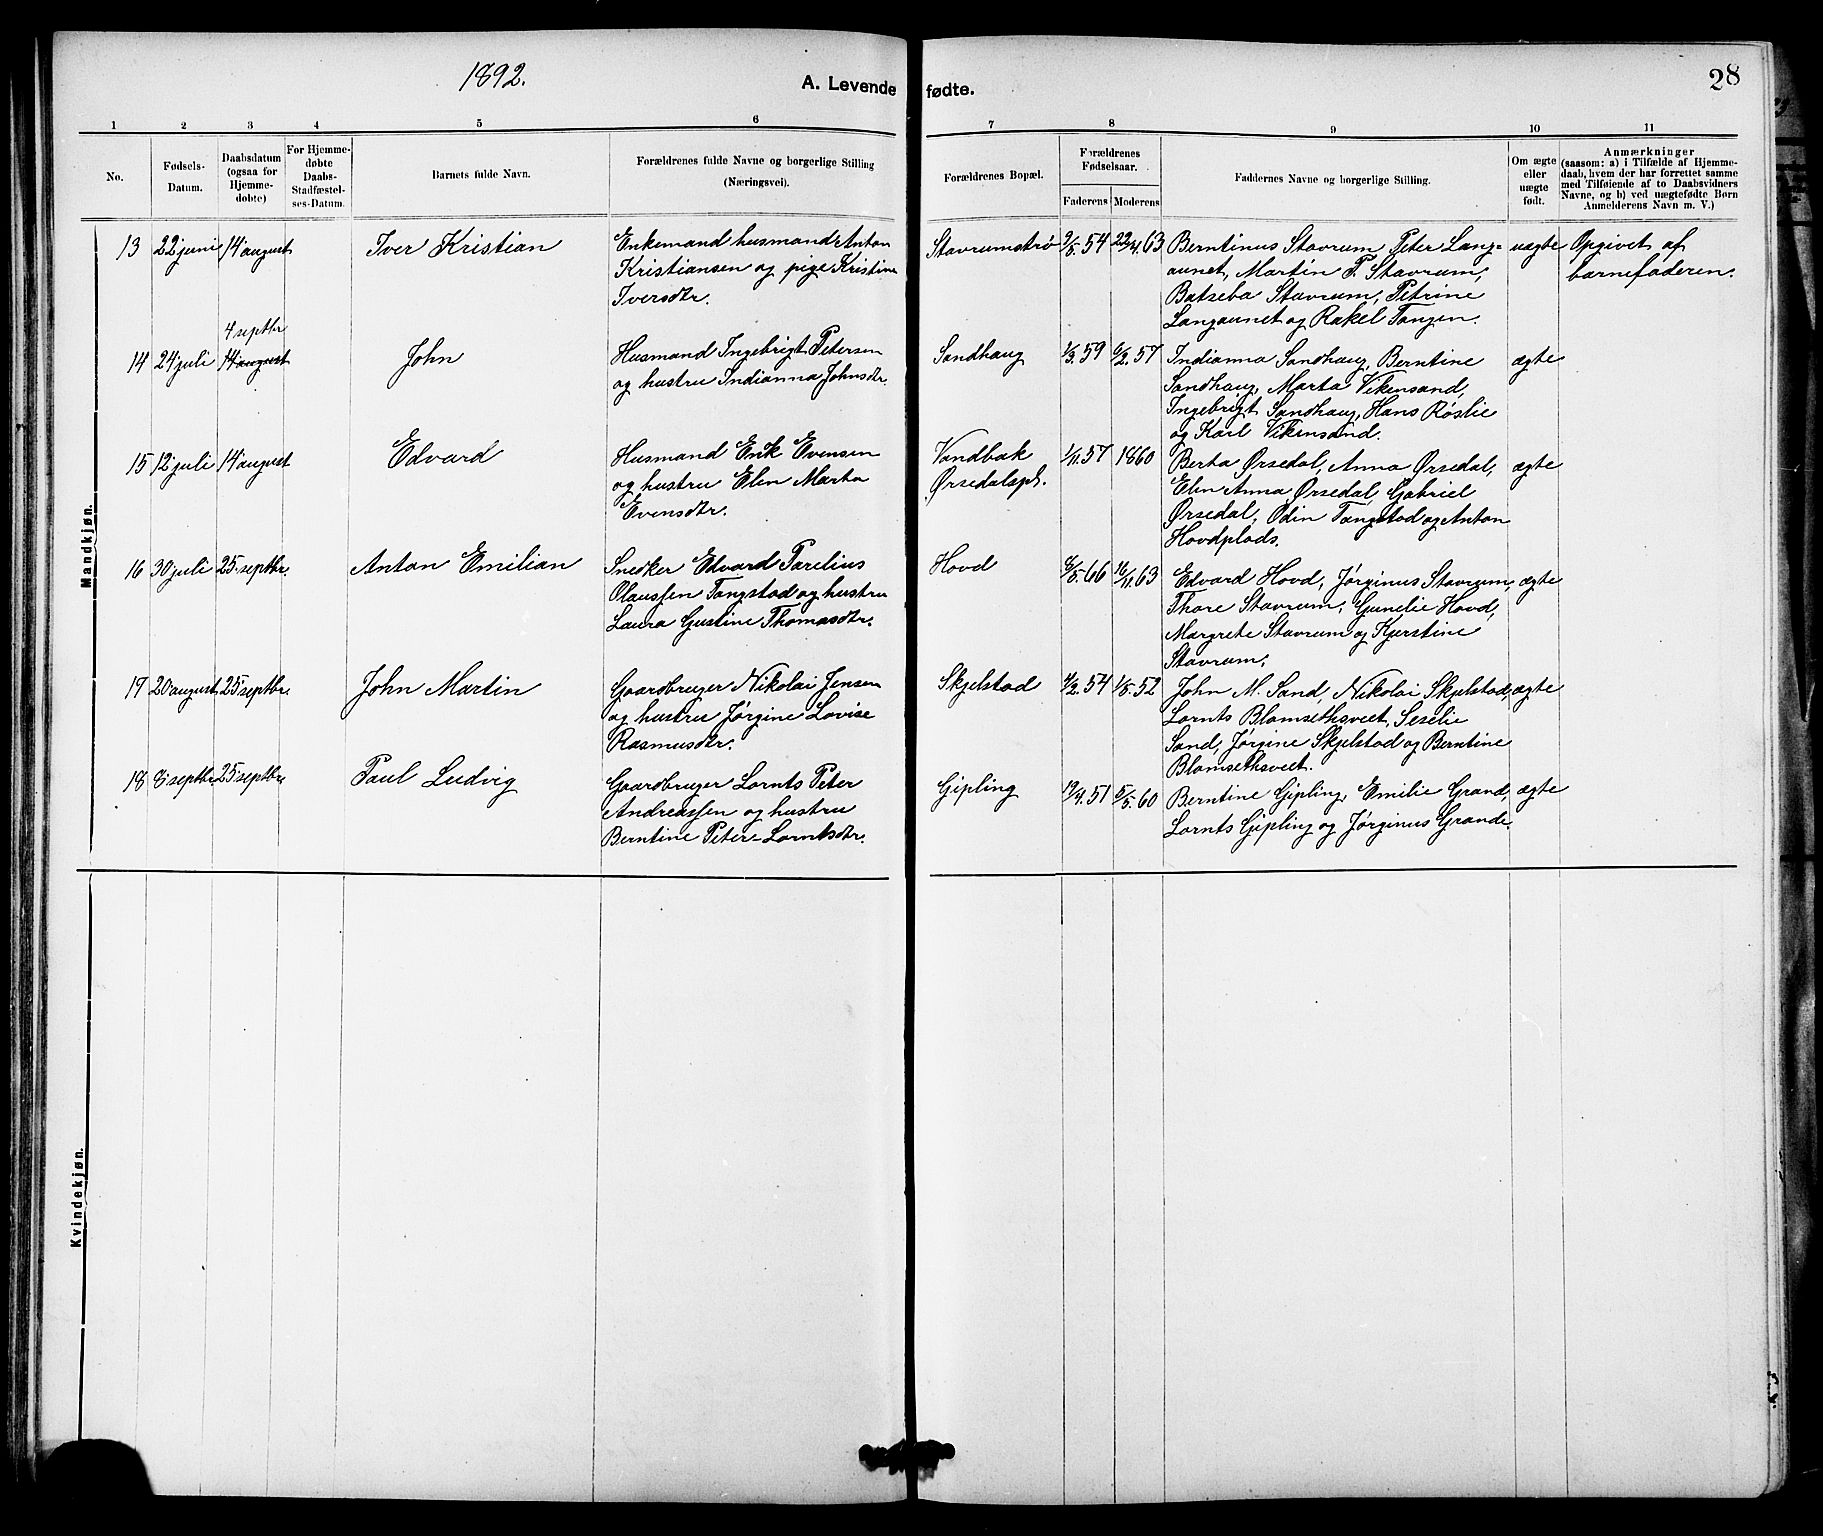 1892.
A. Levende fødte.
28
1 2 3 4 5 6 7 8 9 10 11
No.
Fødsels-
Datum.
Daabsdatum
(ogsaa for
Hjemme-
døbte)
For Hjemme-
døbte
Daabs-
Stadfæstel-
ses-Datum.
Barnets fulde Navn.
Forældrenes fulde Navne og borgerlige Stilling
(Næringsvei).
Forældrenes Bopæl.
Forældrenes
Fødselsaar.
Faderens Moderens
Faddernes Navne og borgerlige Stilling.
Om ægte
eller
uægte
født.
Anmærkninger
(saasom: a) i Tilfælde af Hjemme-
daab, hvem der har forrettet samme
med Tilføiende af to Daabsvidners
Navne, og b) ved uægtefødte Børn
Anmelderens Navn m. V.)
Mandkjøn.
13 22 juni 14 august Iver Kristian
Enkemand husmand Anton
Kristiansen og pige Kristine
Iversdtr.
Stavrumstrø 9/8.54 22/4.63
Berntinus Stavrum, Peter Lang-
aunet, Martin P. Stavrum,
Batseba Stavrum, Petrine
Langaunet og Rakel Tangen.
uægte
Opgivet af
barnefaderen.
4 septbr
14 24 juli 14 august John
Husmand Ingebrigt Petersen
og hustru Indianna Johnsdtr.
Sandhaug 1/3.59 6/2.57
Indianna Sandhaug, Berntine
Sandhaug, Marta Vikensand,
Ingebrigt Sandhaug, Hans Røslie
og Karl Vikensand.
ægte
15 12 juli 14 august Edvard
Husmand Erik Evensen
og hustru Elen Marta
Evensdtr.
Vandbak
Ørsedalspl.
1/11.57 1860
Berta Ørsedal, Anna Ørsedal,
Elen Anna Ørsedal, Gabriel
Ørsedal, Odin Tangstad og Anton
Hovdplads.
ægte
16 30 juli 25 septbr. Anton Emilian
Snedker Edvard Parelius
Olaussen Tangstad og hustru
Laura Gustine Thomasdtr.
Hovd 6/5.66 16/11.63
Edvard Hovd, Jørginus Stavrum,
Thore Stavrum, Gunelie Hovd,
Margrete Stavrum og Kjerstine
Stavrum.
ægte
17 20 august 25 septbr. John Martin
Gaardbruger Nikolai Jensen
og hustru Jørgine Lovise
Rasmusdtr.
Skjelstad 4/2.54 1/5.52
John M. Sand, Nikolai Skjelstad,
Lornts Blomsethsveet, Seselie
Sand, Jørgine Skjelstad og Berntine
Blomsethsveet.
ægte
18 8 septbr. 25 septbr. Paul Ludvig
Gaardbruger Lornts Peter
Andreassen og hustru
Berntine Peter-Lorntsdtr.
Gipling 19/4.51 5/5.60
Berntine Gipling, Emilie Grande,
Lornts Gipling og Jørginus Grande.
ægte
Kvindekjøn.